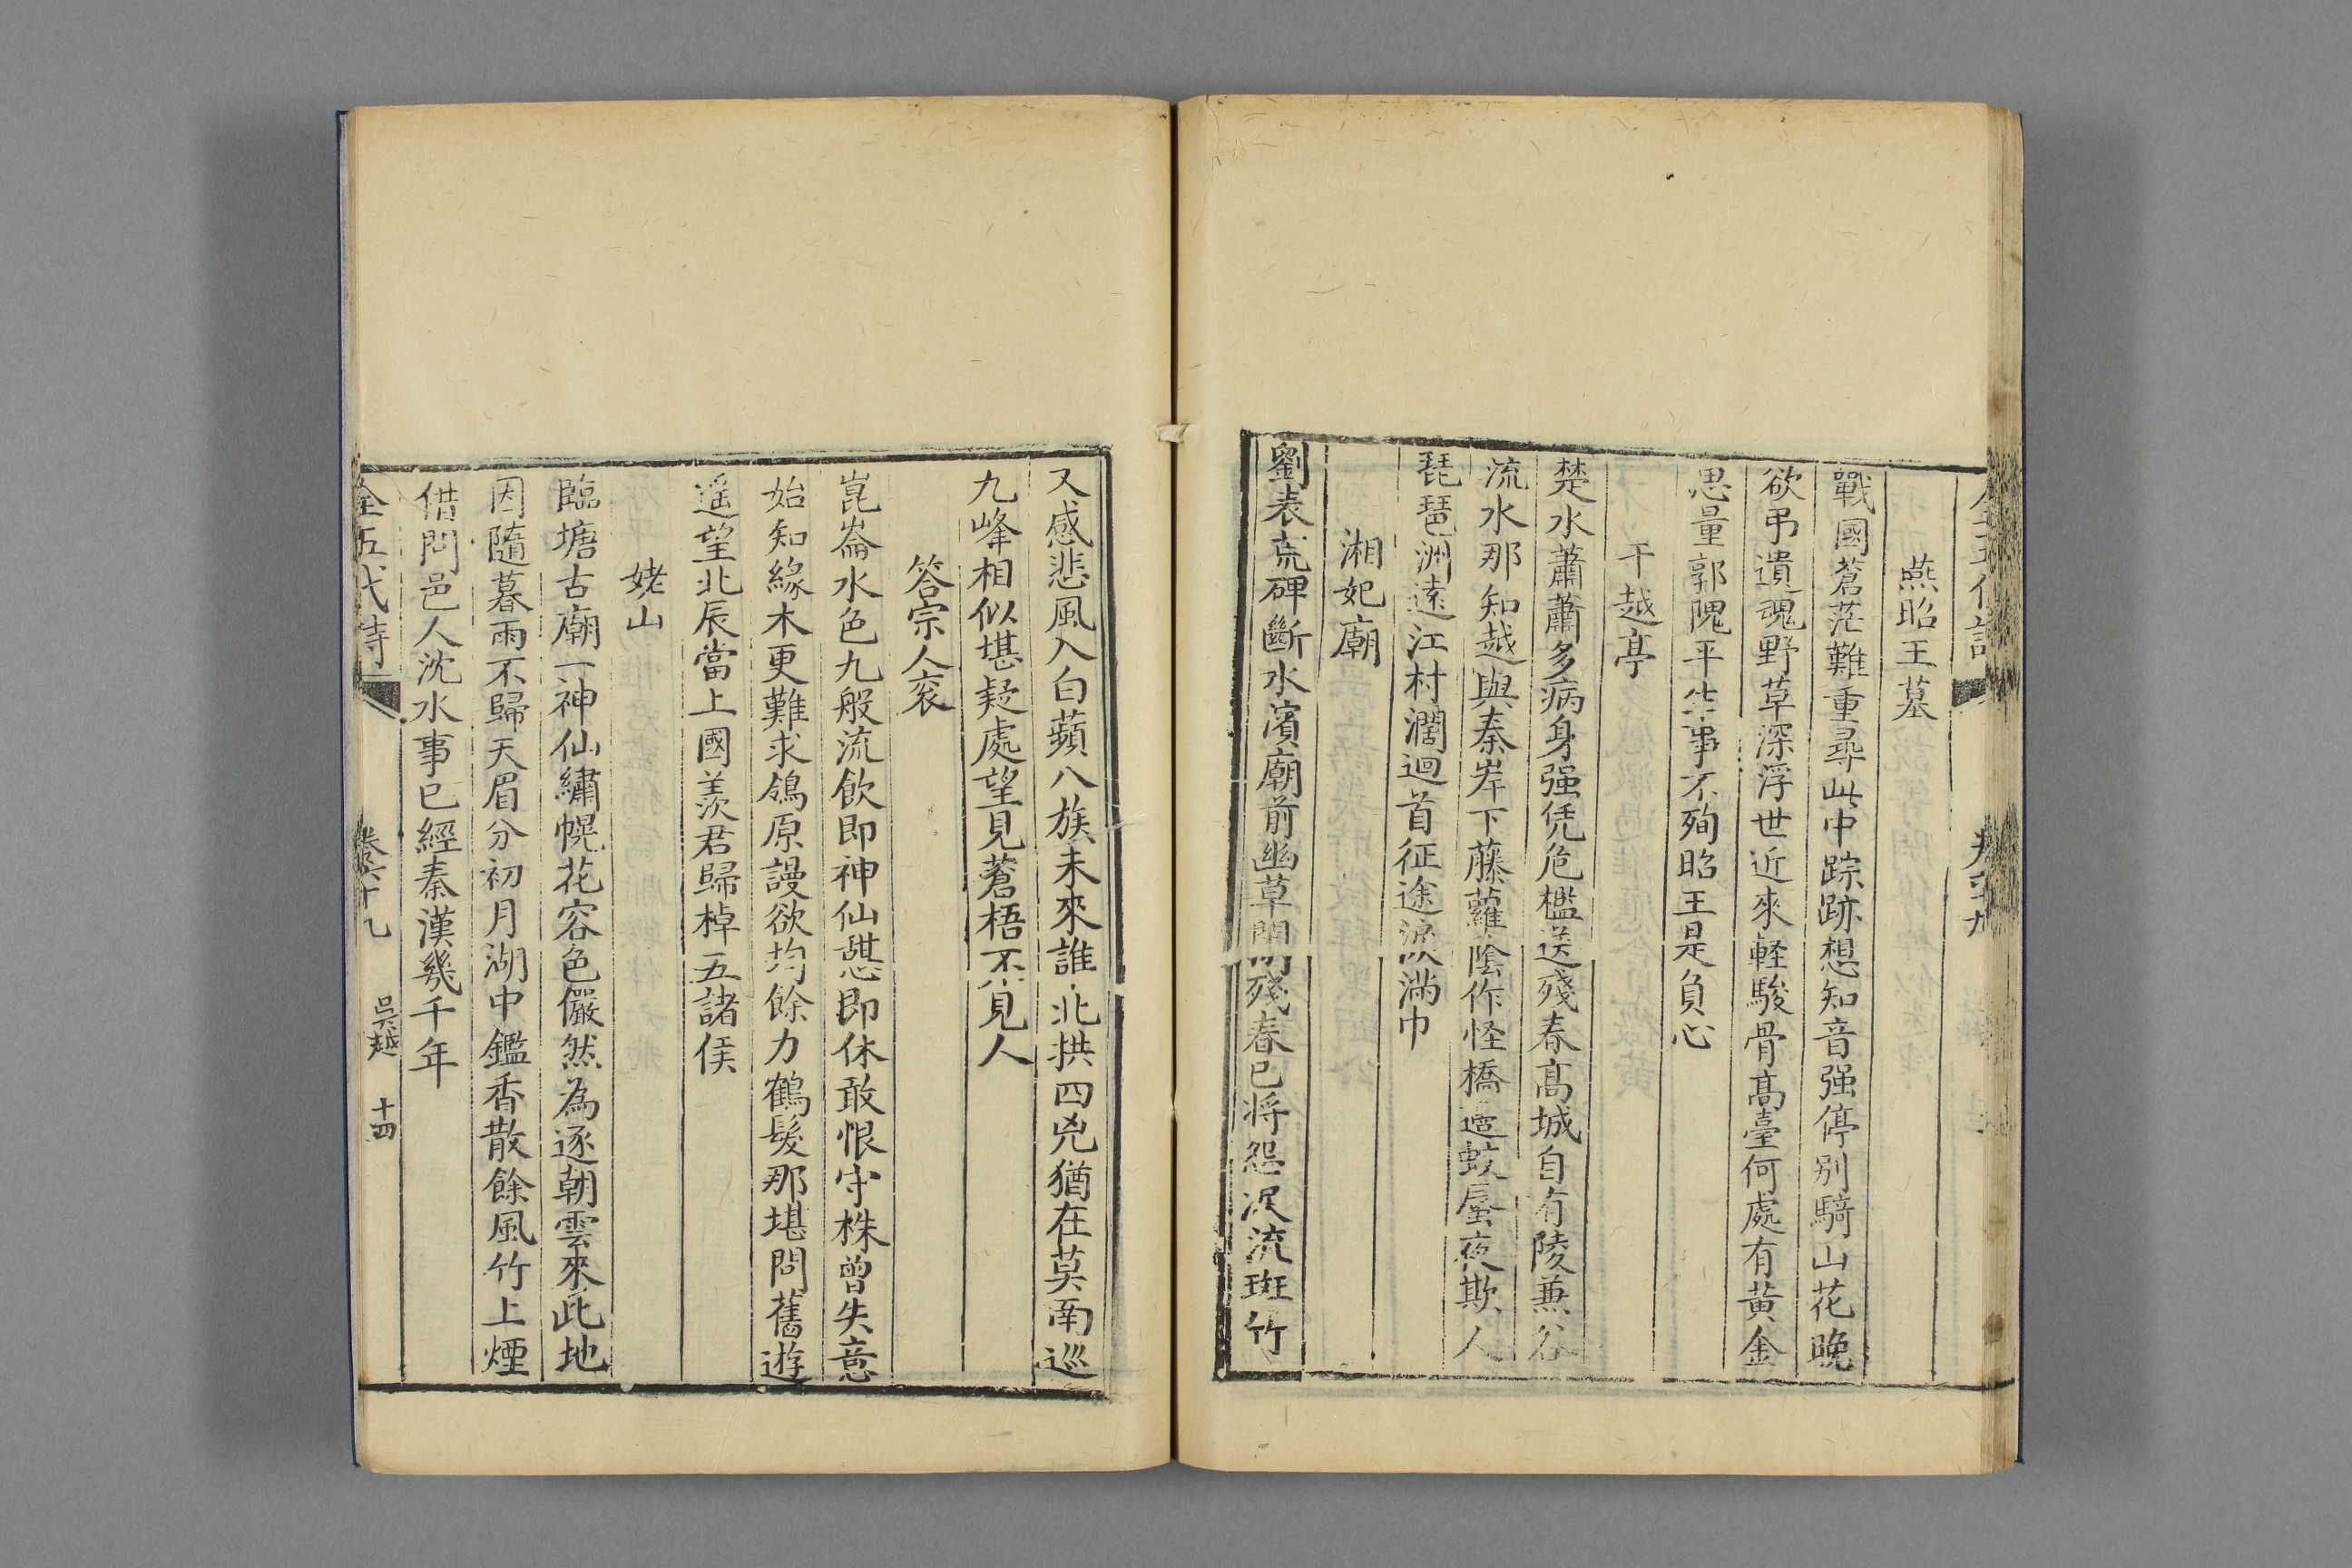 燕昭王墓
戰國蒼茫難重尋此中踪跡想知音强停别騎山花晚
欲弔遺魂野草深浮世近來軽駿骨高臺何處有黄金
思量郭隗平生事不殉昭王是負心
干越亭
楚水蕭蕭多病身强凭危檻送殘春高城自有陵兼谷
流水那知越與秦岸下藤蘿陰作怪橋邉蛟蜃夜欺人
琵琶洲遠江村濶迴首征途淚滿巾
湘妃廟
劉表荒碑斷水濱廟前幽草閉殘春已将怨淚流斑竹
又感悲風入白蘋八族未來誰北拱四兇猶在莫南巡
九峰相似堪疑處望見蒼梧不見人
答宗人衮
崑崙水色九般流飲即神仙憇即休敢恨守株曾失意
始知緣木更難求鴒原謾欲均餘力鶴髮那堪問舊遊
遥望北辰當上國羨君歸棹五諸侯
姥山
臨塘古廟一神仙繡幌花容色儼然為逐朝雲來此地
因隨暮雨不歸天眉分初月湖中鑑香散餘風竹上煙
借問邑人沈水事已經秦漢幾千年
全五代詩 卷六十九 吳越 十四